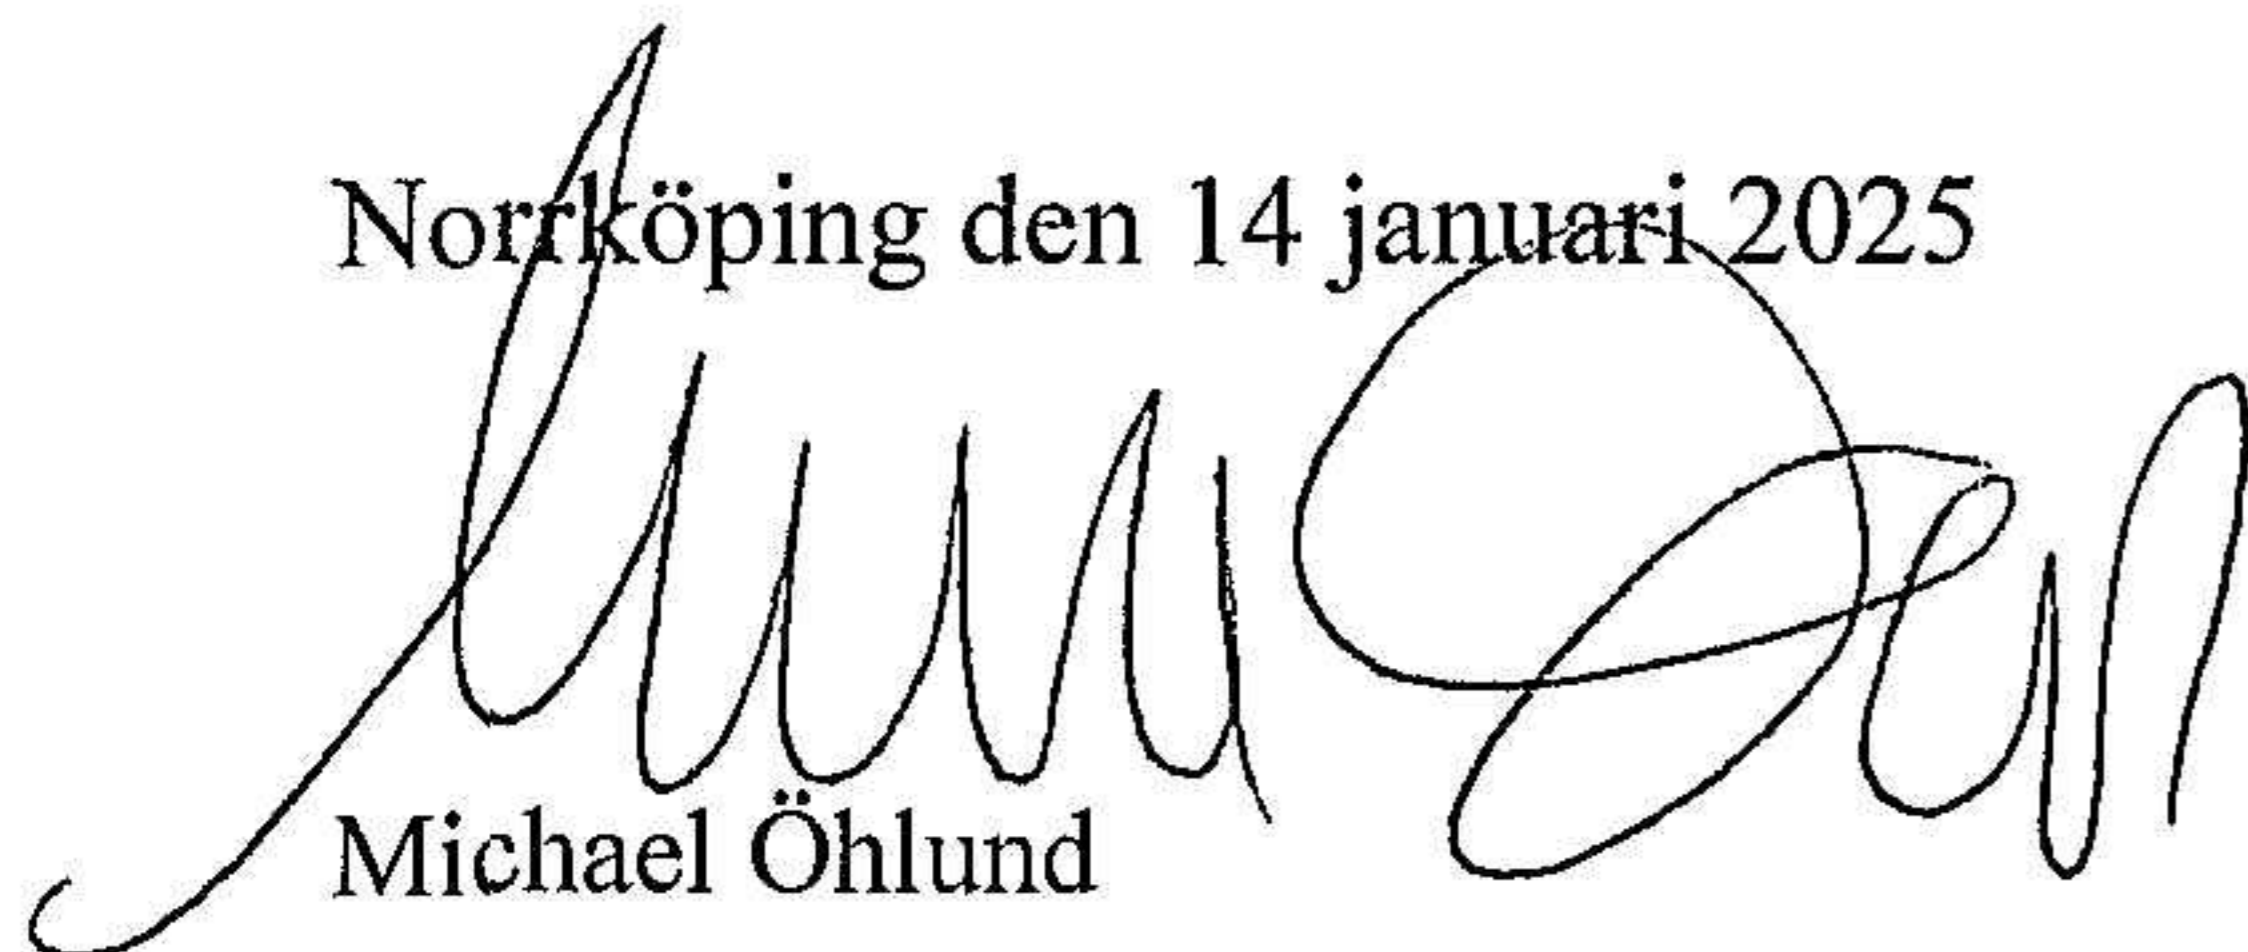 Norrköping den 14 januari 2025
Michael Öhlund